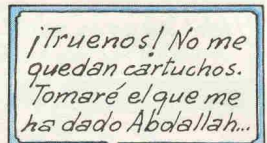 ¡Truenos! No me
quedan cartuchos.
Tomaré el que me
ha dado Abdallah...